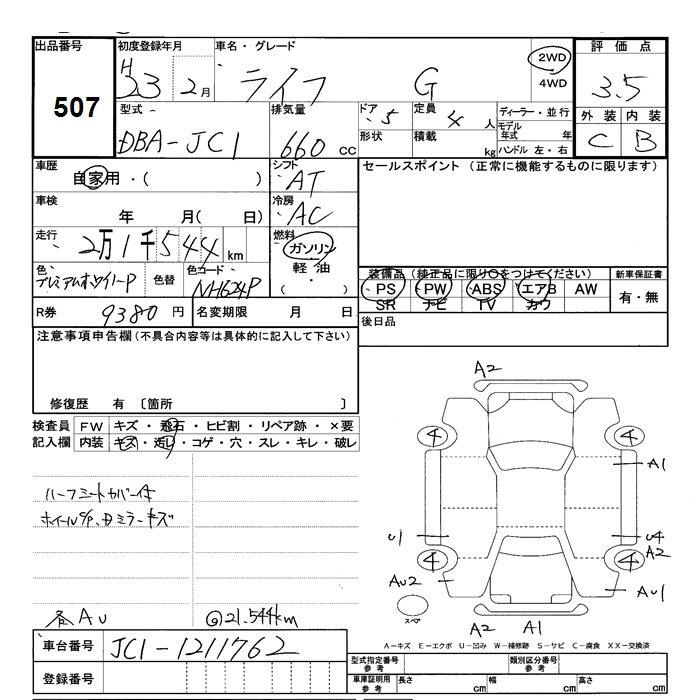 出品番号
507
初度登録年月
H23 2月
車名・グレード
ライフ G
2WD
4WD
評価点
3.5
外装 内装
C B
型式
DBA-JC1
排気量
660 cc
ドア 5
定員 4 人
形状
積載 kg
ディーラー・並行
モデル年式 年
ハンドル 左・右
車歴
自家用・( )
シフト
AT
車検
年 月( 日)
冷房
AC
走行
2万1千544 km
燃料
ガソリン
軽油
( ・ )
色
プレミアムホワイトP
色替
色コード
NH624P
R券 9380 円
名変期限 月 日
セールスポイント (正常に機能するものに限ります)
装備品 (純正品に限り○をつけてください)
PS PW ABS エアB AW
SR ナビ TV カワ
新車保証書
有・無
後日品
注意事項申告欄 (不具合内容等は具体的に記入して下さい)
修復歴 有 〔箇所 〕
検査員
記入欄
FW キズ・飛石・ヒビ割・リペア跡・×要
内装 キズ・汚レ・コゲ・穴・スレ・キレ・破レ
ハーフシートカバー付
ホイールS/P、Dミラーキズ
各AU
@21.544km
A2
4
4
A1
U1
U4
4
4
A2
AU2
AU1
スペア
A2 A1
A-キズ E-エクボ U-凹み W-補修跡 S-サビ C-腐食 XX-交換済
車台番号 JC1-1211762
登録番号
型式指定番号
参考
類別区分番号
参考
車庫証明用
参考
長さ cm
幅 cm
高さ cm